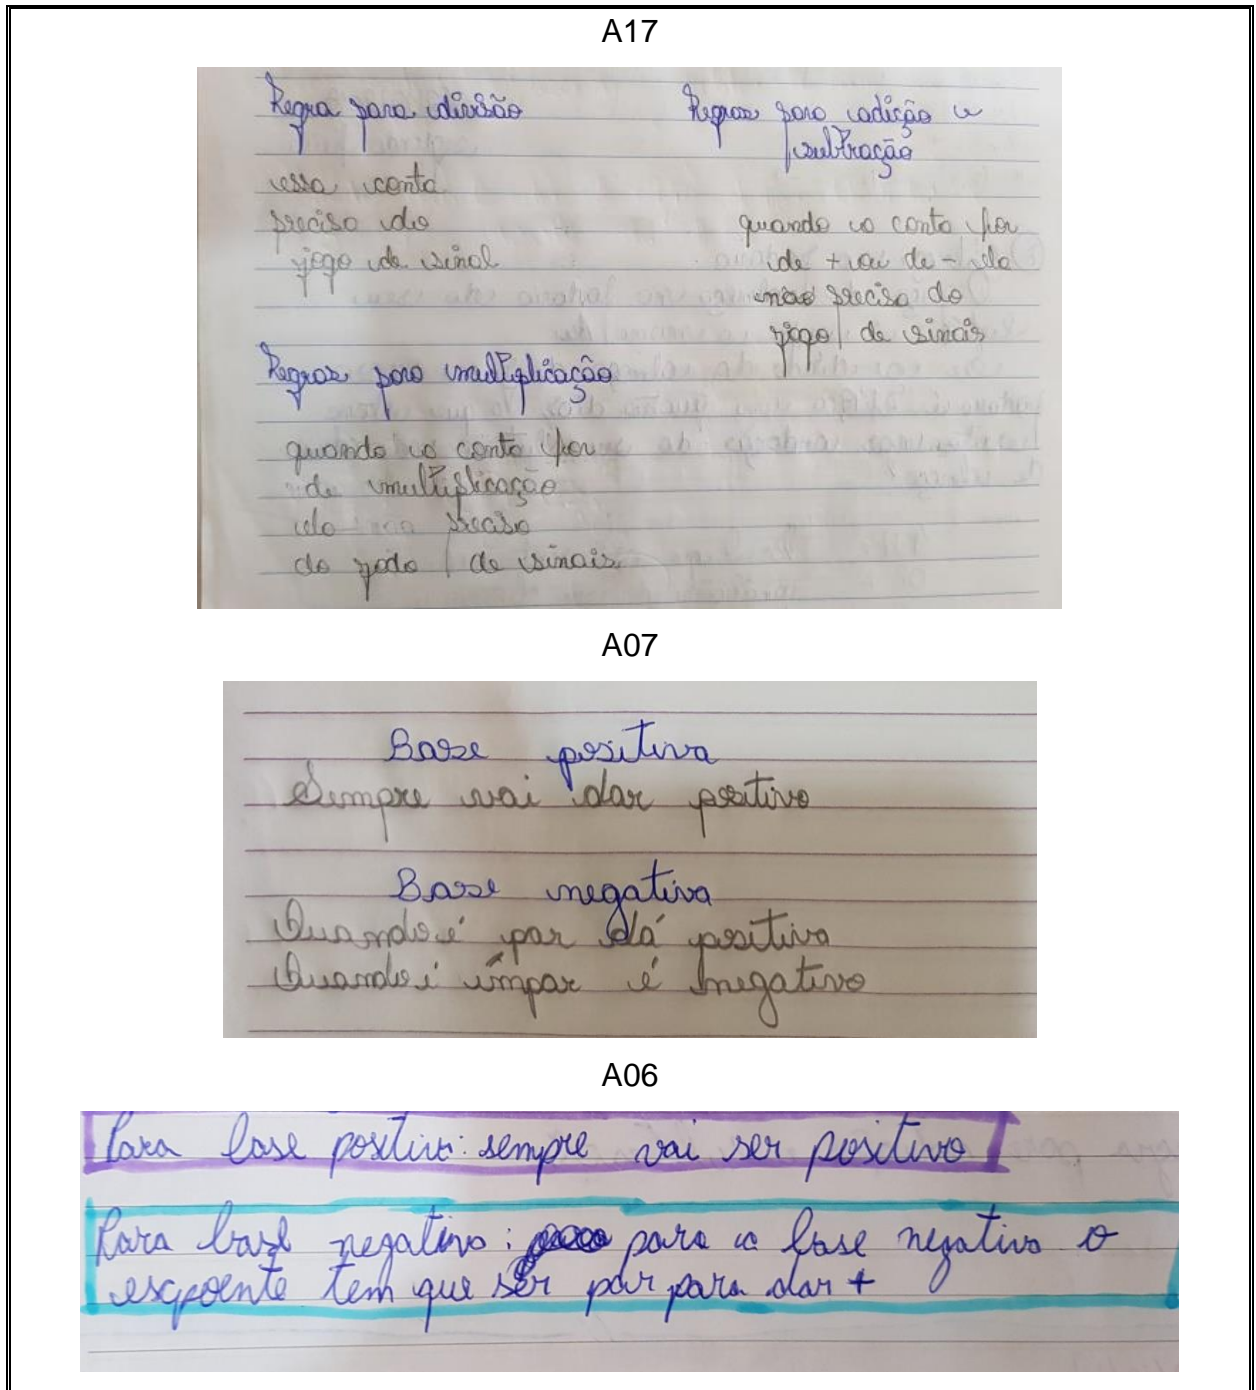 A17
Regra para divisão
essa conta
precisa do
jogo de sinal
Regras para adição e
subtração
quando a conta for
de + ou de - ela
não precisa do
jogo de sinais
Regras para multiplicação
quando a conta for
de multiplicação
ela precisa
do jodo de sinais
A07
Base positiva
Sempre vai dar positivo
Base negativa
Quando é par dá positivo
Quando é ímpar é negativo
A06
Para base positiva: sempre vai ser positivo
Para base negativa: para a base negativa o
expoente tem que ser par para dar +